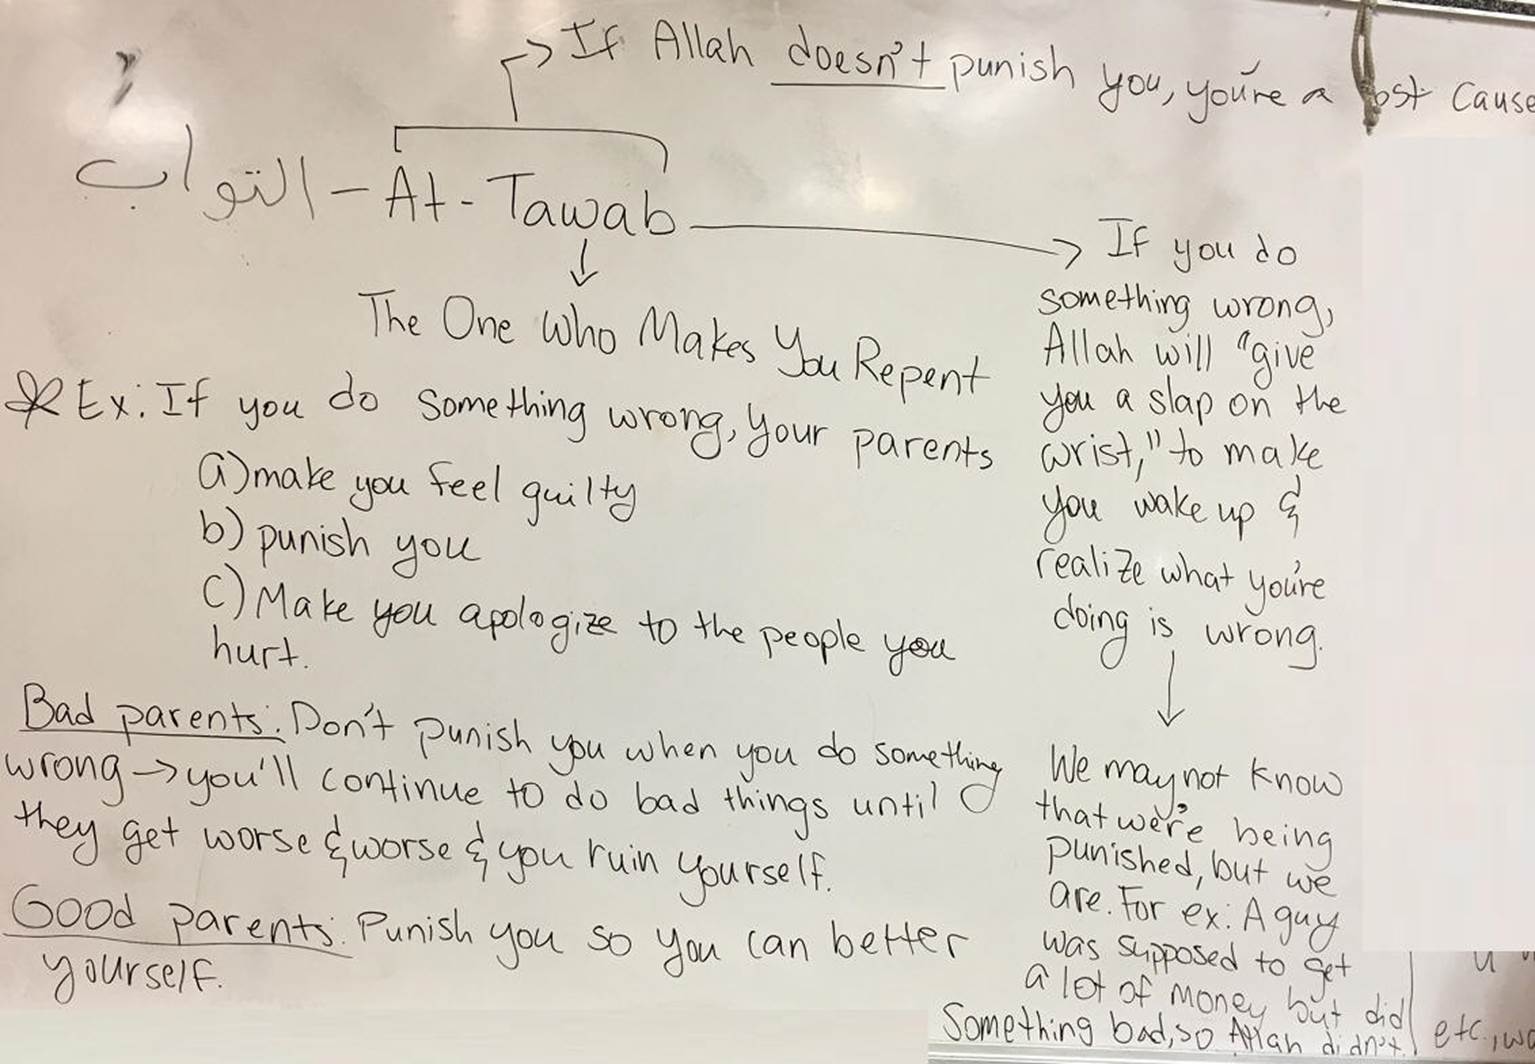 If Allah doesn't punish you, you're a lost cause
التواب - At-Tawab
The One Who Makes You Repent
Ex: If you do something wrong, your parents
a) make you feel guilty
b) punish you
c) Make you apologize to the people you
hurt.
Bad parents: Don't punish you when you do something
wrong → you'll continue to do bad things until
they get worse & worse & you ruin yourself.
Good parents: Punish you so you can better
yourself.
→ If you do
something wrong,
Allah will "give
you a slap on the
wrist," to make
you wake up &
realize what you're
doing is wrong.
We may not know
that we're being
punished, but we
are. For ex: A guy
was supposed to get
a lot of money but did
something bad, so Allah didn't
etc.,